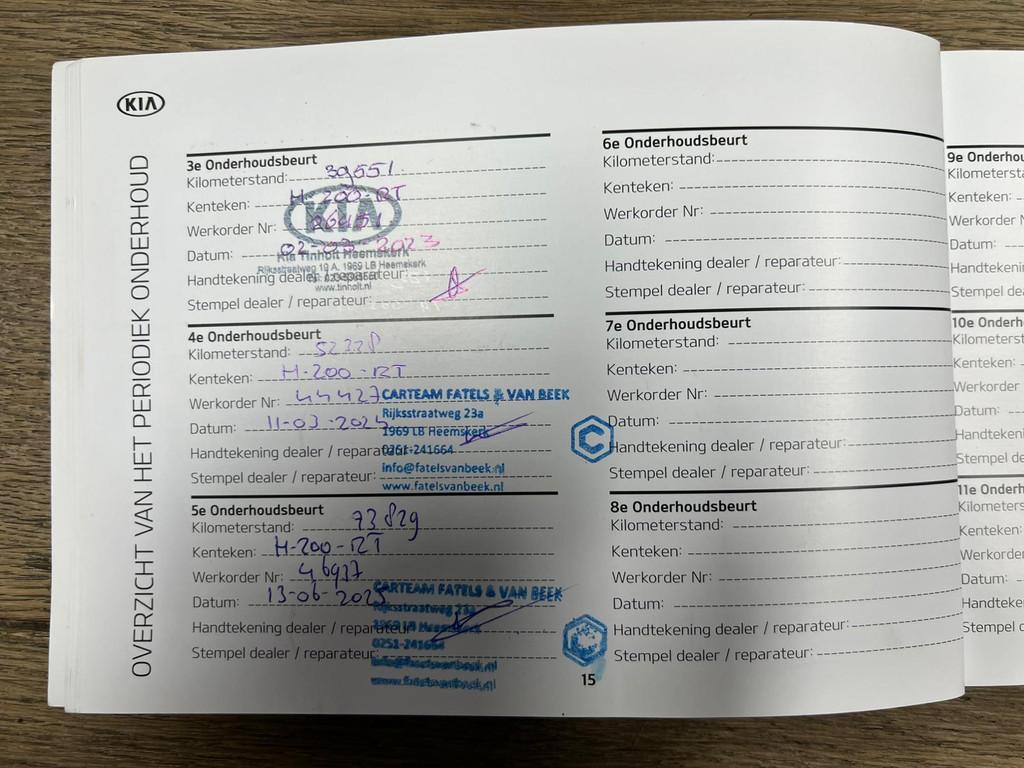 KIA
OVERZICHT VAN HET PERIODIEK ONDERHOUD
3e Onderhoudsbeurt
Kilometerstand: 39551
Kenteken: H-200-RT
KIA
Werkorder Nr:
Datum: 02-03-2023
Kia Tinholt Heemskerk
Rijksstraatweg 19 A, 1969 LB Heemskerk
Handtekening dealer / reparateur:
www.tinholt.nl
Stempel dealer / reparateur:
4e Onderhoudsbeurt
Kilometerstand: 52228
Kenteken: H-200-RT
Werkorder Nr: 44427
CARTEAM FATELS & VAN BEEK
Rijksstraatweg 23a
Datum: 11-03-2025
1969 LB Heemskerk
Handtekening dealer / reparateur:
0251-241664
info@fatelsvanbeek.nl
Stempel dealer / reparateur:
www.fatelsvanbeek.nl
5e Onderhoudsbeurt
Kilometerstand: 73829
Kenteken: H-200-RT
Werkorder Nr: 46937
CARTEAM FATELS & VAN BEEK
Datum: 13-06-2025
Rijksstraatweg 23a
1969 LB Heemskerk
Handtekening dealer / reparateur:
0251-241664
Stempel dealer / reparateur:
info@fatelsvanbeek.nl
www.fatelsvanbeek.nl
6e Onderhoudsbeurt
Kilometerstand:
Kenteken:
Werkorder Nr:
Datum:
Handtekening dealer / reparateur:
Stempel dealer / reparateur:
7e Onderhoudsbeurt
Kilometerstand:
Kenteken:
Werkorder Nr:
Datum:
Handtekening dealer / reparateur:
Stempel dealer / reparateur:
8e Onderhoudsbeurt
Kilometerstand:
Kenteken:
Werkorder Nr:
Datum:
Handtekening dealer / reparateur:
Stempel dealer / reparateur:
15
9e Onderhou
Kilometersta
Kenteken:
Werkorder N
Datum:
Handtekeni
Stempel dea
10e Onderh
Kilometerst
Kenteken:
Werkorder
Datum:
Handteken
Stempel de
11e Onderh
Kilometers
Kenteken:
Werkorder
Datum:
Handteke
Stempel d